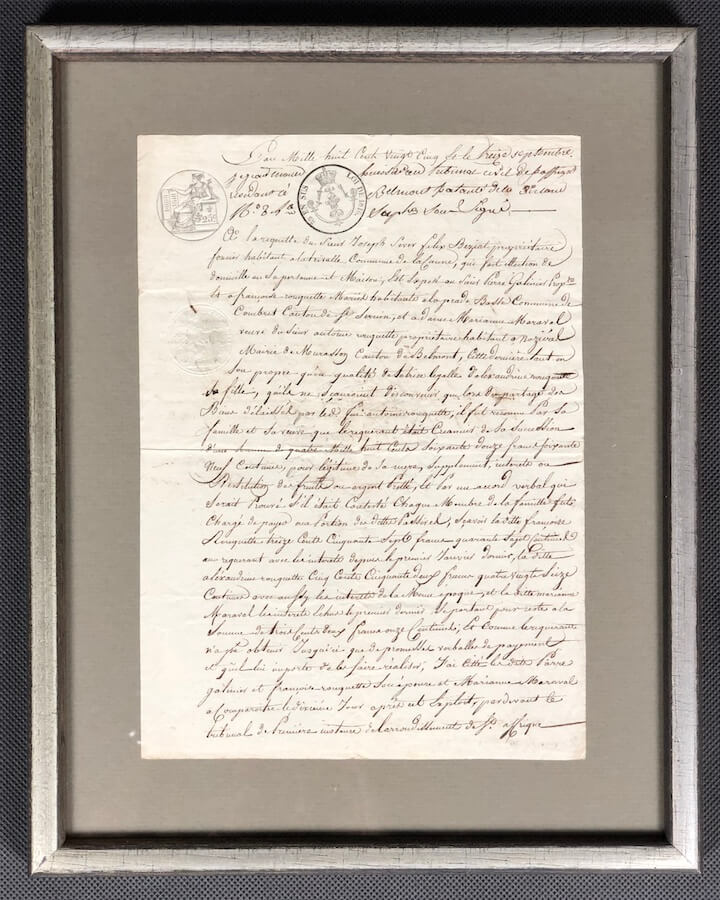 L'an Mille huit Cents Vingt Cinq & le treize septembre,
huissier au tribunal civil de
résidant à Belmont patenté
N.o 84 Soussigné.
EN SUS LOI DE 1816
25c
A la requette du Sieur Joseph Felix propriétaire
foncier habitant Commune de Lacaune, qui fait élection de
domicille en sa personne et Maison;
et françoise rouquette Mariés habitants Commune de
Combret Canton de St. Sernin, et a dame Marianne Maraval
veuve du Sieur antoine rouquette propriétaire habitant a
Mairie de Murasson Canton de Belmont, Cette dernière tant en
son propre qu'en qualité de tutrice legalle d'alexandrine rouquette
sa fille, qu'ils ne sçauroient disconvenir que lors du partage des
Biens délaissés par led. feu antoine rouquette, il fut reconnu par sa
famille et sa veuve que le requerant était Creancier de sa succession
d'une somme de quatre Mille huit Cents soixante douze francs soixante
Neuf Centimes, pour légitime de sa mere, supplement, interets ou
Restitution de fruits ou argent Preté, et Par un accord verbal qui
serait Prouvé S'il était Contesté Chaque Membre de la famille fut
Chargé de payer sa Portion des dettes Passives, sçavoir la dite françoise
Rouquette treize Cents Cinquante Sept francs quarante Sept Centimes
au requerant avec les interets depuis le premier Janvier dernier, la dite
alexandrine rouquette Cinq Cents Cinquante deux francs quatre vingts Seize
Centimes avec aussy les interets de la Meme epoque, et la dite marianne
Maraval les interets echus le premier dernier se portant pour reste a la
Somme de trois Cents deux francs onze Centimes; Et Comme le requerant
n'a pu obtenir Jusqu'ici que de promesses verballes de payement
et qu'il lui importe de le faire réaliser, J'ai Cité les dits Pierre
galinier et françoise rouquette Sus épouse et Marianne Maraval
a Comparaitre le dixieme Jour après cet Exploit, pardevant le
tribunal de Premiere instance de l'arrondissement de St. affrique